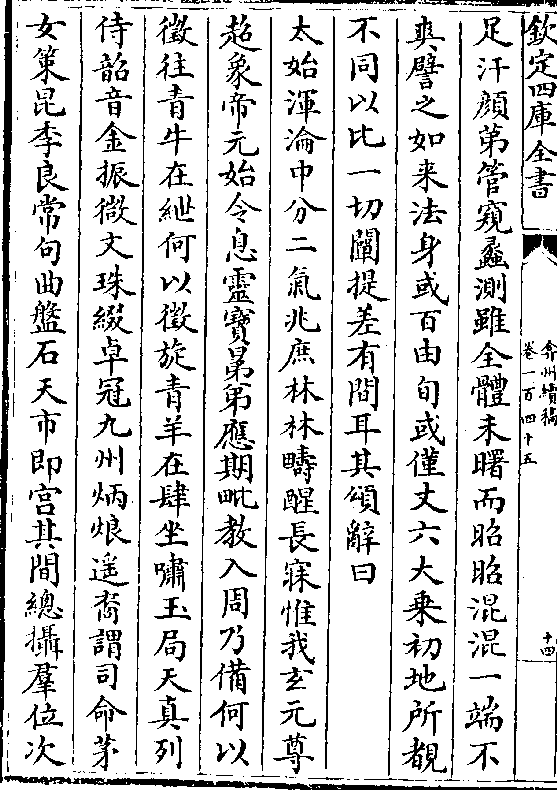 欽定四庫全書
弇州續稿
卷一百四十五
十四
足汗顔第管窺蠡測雖全體未曙而昭昭混混一端不
爽譬之如来法身或百由旬或僅丈六大乗初地所覩
不同以比一切闡提差有間耳其頌辭曰
太始渾淪中分二氣兆庶林林疇醒長寐惟我玄元尊
超象帝元始令息靈寶晜弟應期毗教入周乃備何以
徵往青牛在紲何以徵旋青羊在肆坐嘯玉局天真列
侍韶音金振微文珠綴卓冠九州炳烺遥裔謂司命茅
女策昆季良常句曲盤石天市即宫其間總攝羣位次